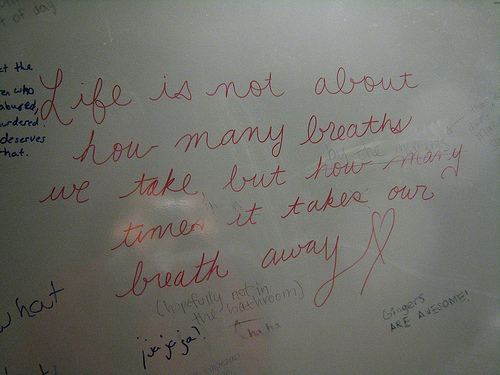 t of day
t the
en who
abused,
urdered.
deserves
that.
Life is not about
how many breaths
we take, but how many
times it takes our
breath away
(hopefully not in
the bathroom)
ha ha
what
¡ja ja ja!
Gingers
ARE AWESOME!